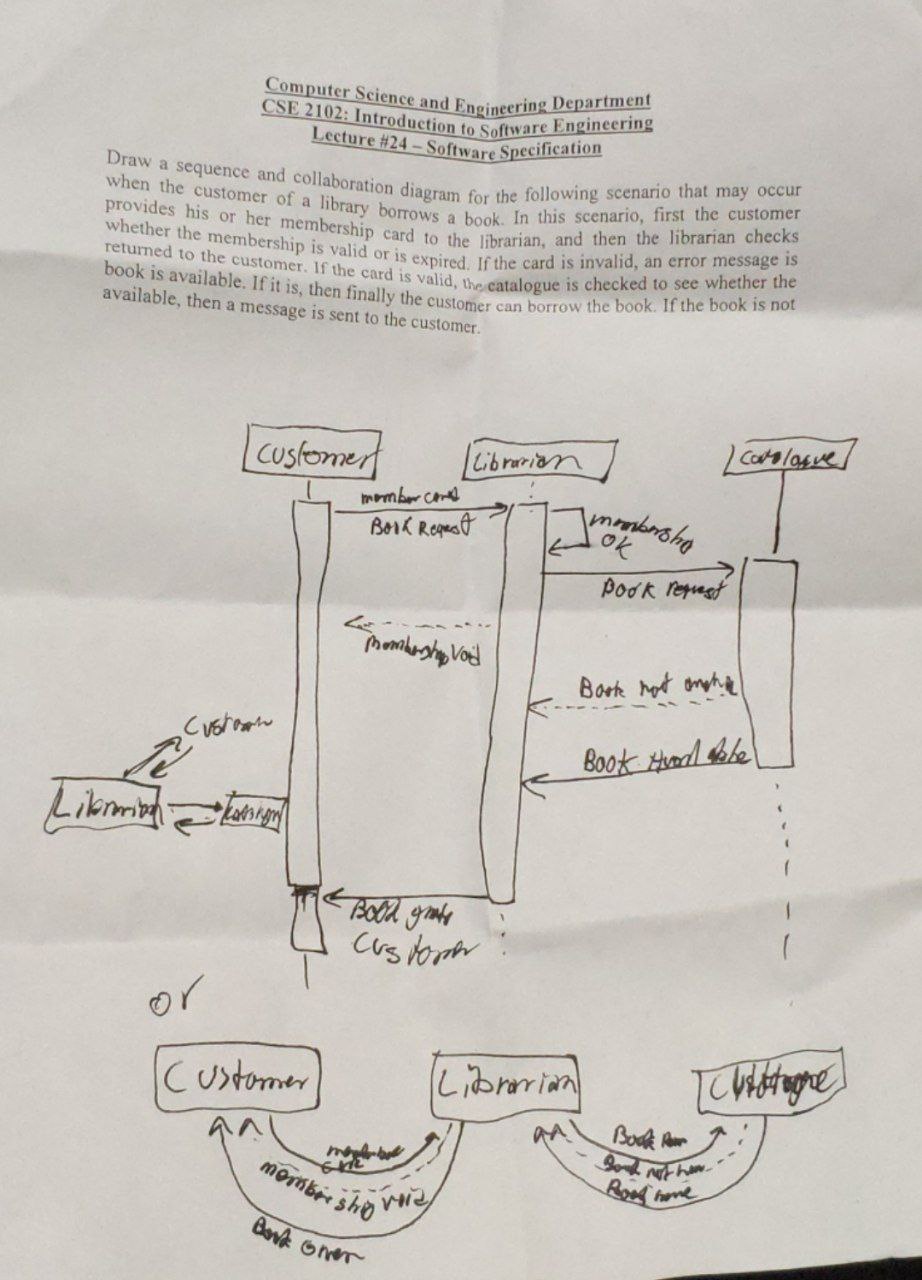 Computer Science and Engineering Department
CSE 2102: Introduction to Software Engineering
Lecture #24 – Software Specification
Draw a sequence and collaboration diagram for the following scenario that may occur
when the customer of a library borrows a book. In this scenario, first the customer
provides his or her membership card to the librarian, and then the librarian checks
whether the membership is valid or is expired. If the card is invalid, an error message is
returned to the customer. If the card is valid, the catalogue is checked to see whether the
book is available. If it is, then finally the customer can borrow the book. If the book is not
available, then a message is sent to the customer.
Customer
Librarian
Catalogue
member card
Book Request
OK
Book request
membership void
Book not
Book
Customer
Librarian
Book
Customer
or
Customer
Librarian
membership void
Book
Book not
Book
Book Given